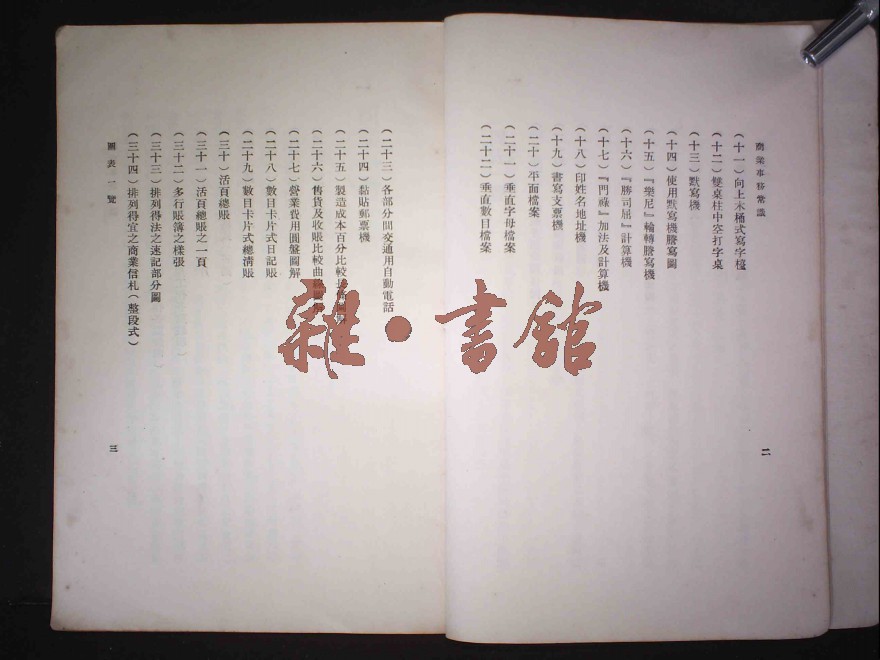 商業事務常識
(十一)向上木桶式寫字檯
(十二)雙桌柱中空打字桌
(十三)默寫機
(十四)使用默寫機謄寫圖
(十五)『樂尼』輪轉謄寫機
(十六)『勝司屈』計算機
(十七)『門祿』加法及計算機
(十八)印姓名地址機
(十九)書寫支票機
(二十)平面檔案
(二十一)垂直字母檔案
(二十二)垂直數目檔案
二
(二十三)各部分間交通用自動電話
(二十四)黏貼郵票機
(二十五)製造成本百分比較
(二十六)售貨及收賬比較曲線
(二十七)營業費用圓盤圖解
(二十八)數目卡片式日記賬
(二十九)數目卡片式總清賬
(三十)活頁總賬
(三十一)活頁總賬之一頁
(三十二)多行賬簿之樣張
(三十三)排列得法之速記部分圖
(三十四)排列得宜之商業信札(整段式)
圖表一覽
三
雜·書館